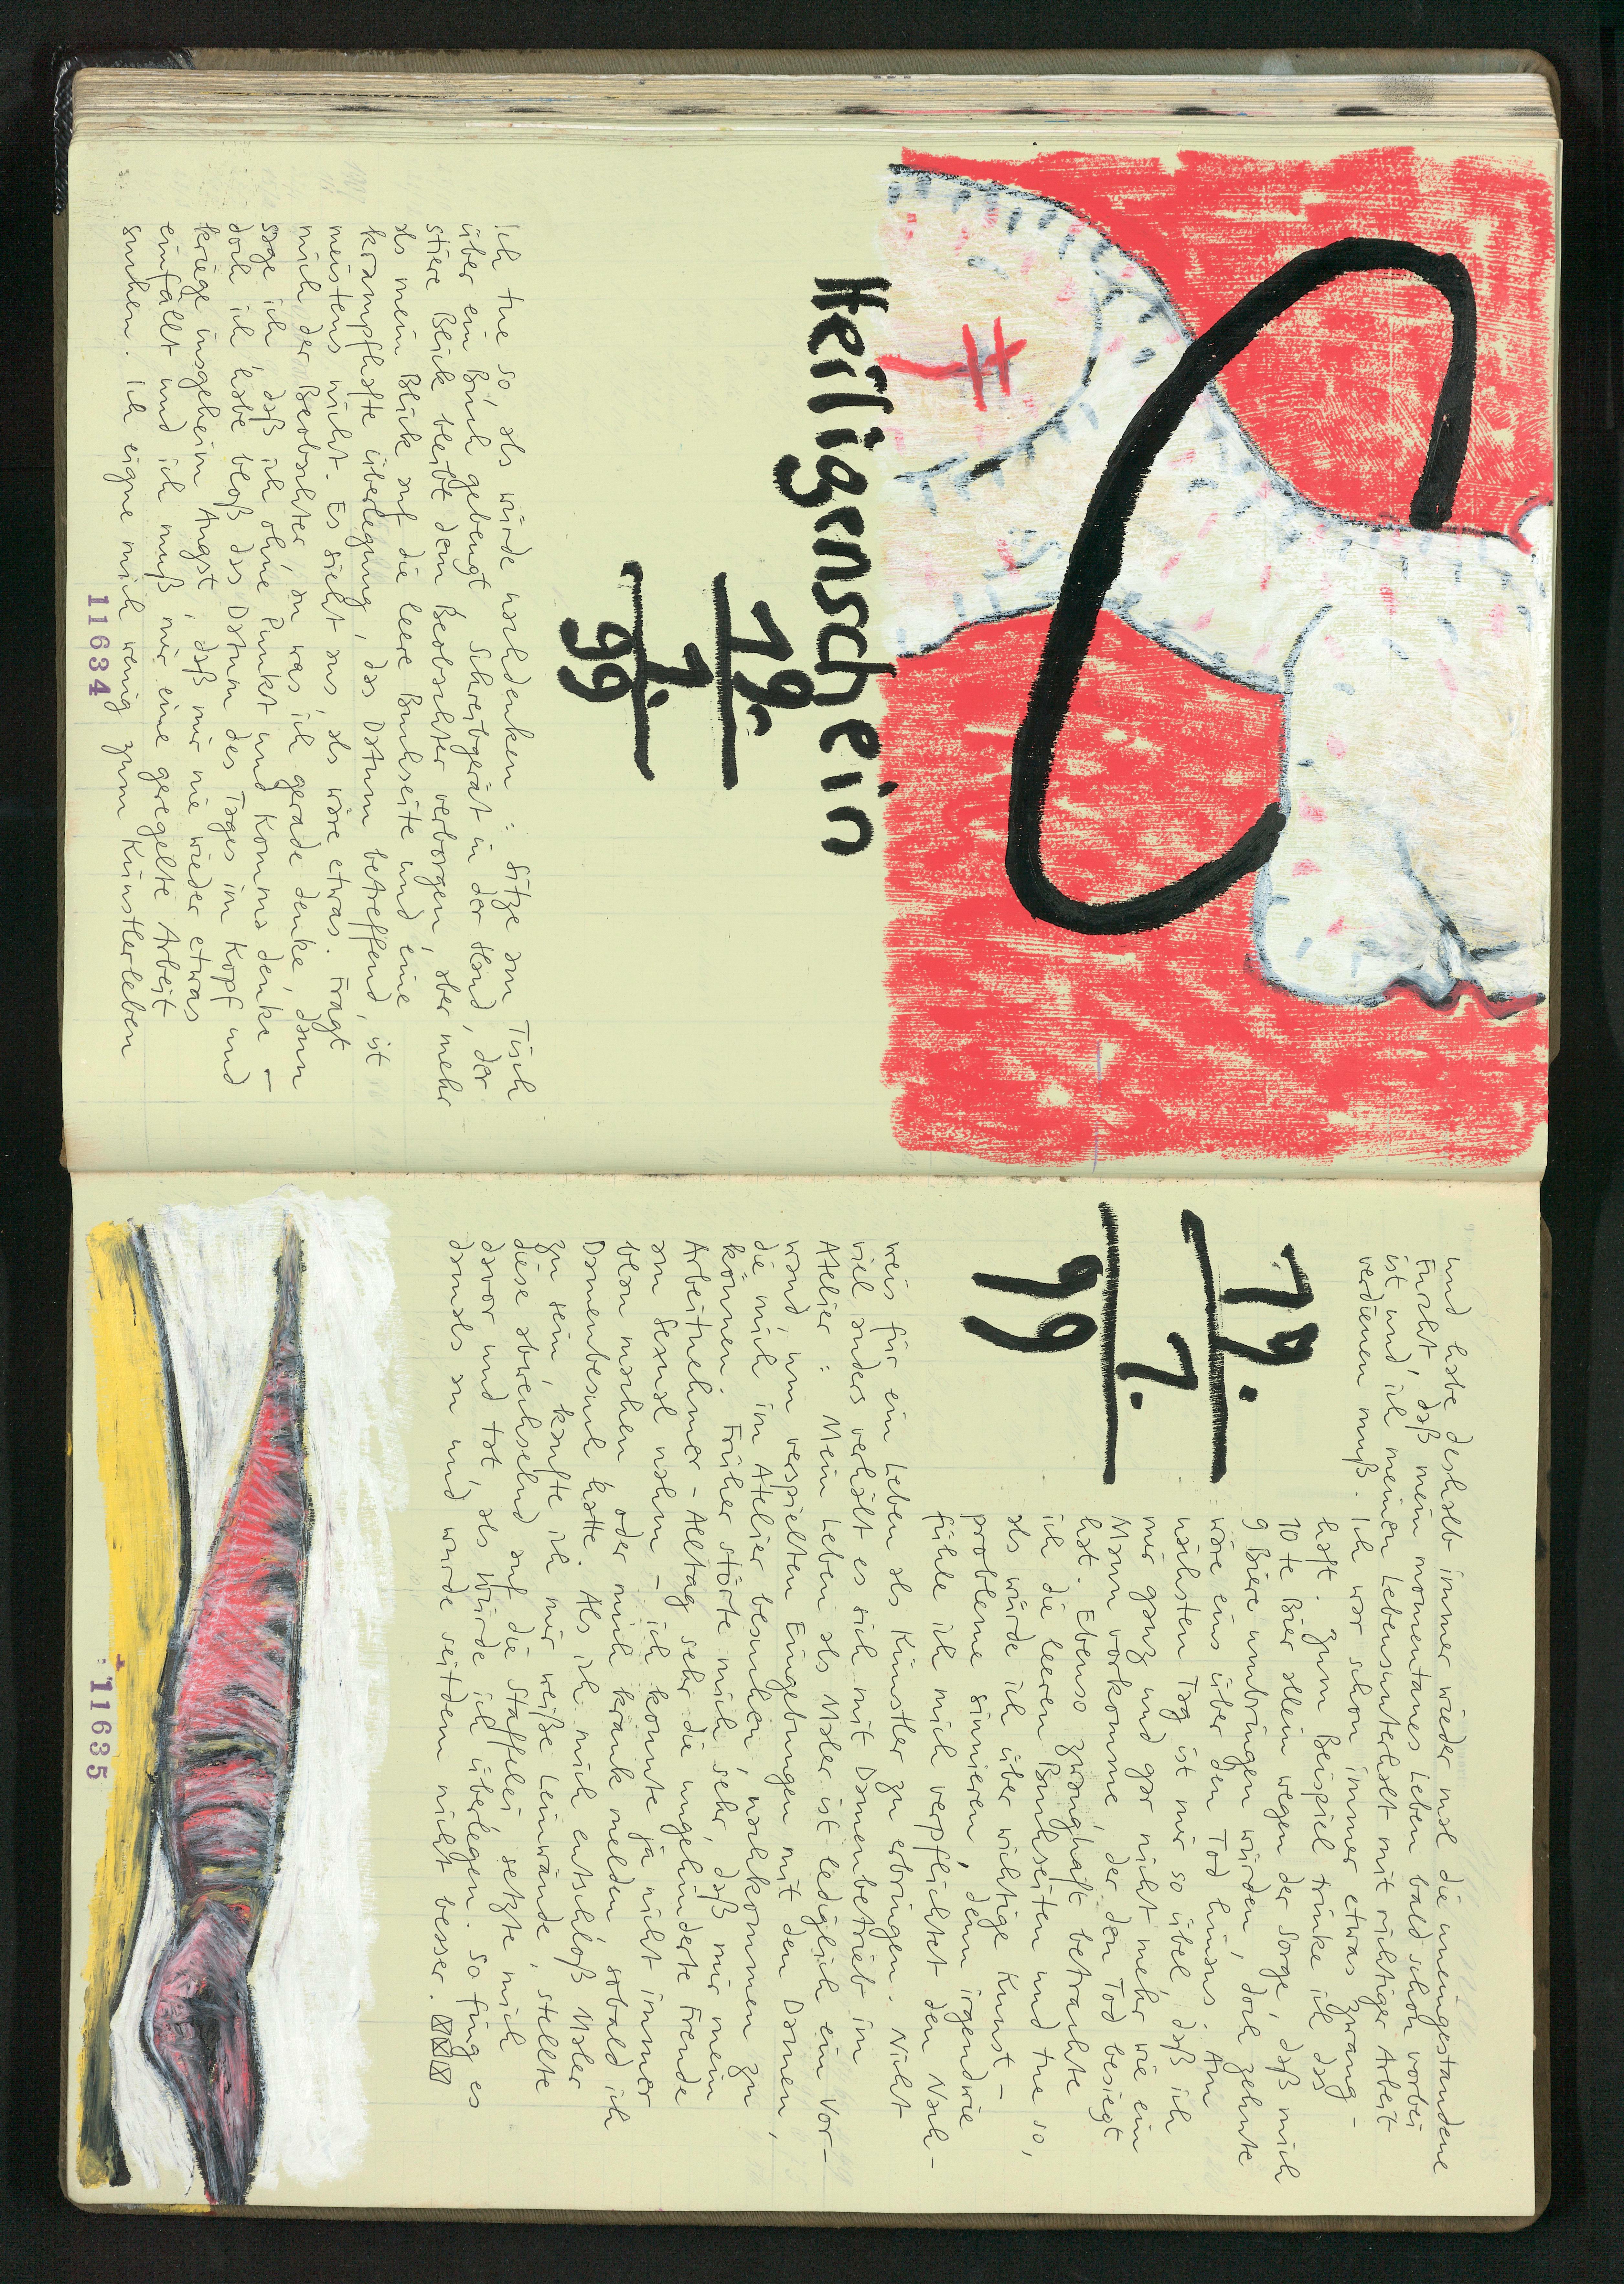 Heiligenschein
19.
7.
99
Ich tue so, als würde nachdenken: Sitze am Tisch
über ein Buch gebeugt, Schreibgerät in der Hand, der
stiere Blick bleibt dem Beobachter verborgen, aber mehr
als mein Blick auf die leere Buchseite und eine
krampfhafte Überlegung, das Datum betreffend, ist
meistens nicht. Es sieht aus, als wäre etwas. Fragt
mich der Beobachter an was ich gerade denke, dann
sage ich, daß ich ohne Punkt und Komma denke –
doch ich habe bloß das Datum des Tages im Kopf und
kriege insgeheim Angst, daß mir nie wieder etwas
einfällt und ich muß mir eine geregelte Arbeit
suchen. Ich eigne mich wenig zum Künstlerleben
11634
und habe deshalb immer wieder mal die uneingestandene
Furcht, daß mein momentanes Leben bald schon vorbei
ist und ich meinen Lebensunterhalt mit richtiger Arbeit
verdienen muß. Ich war schon immer etwas zwang-
19.
7.
99
haft. Zum Beispiel trinke ich das
10te Bier allein wegen der Sorge, daß mich
9 Biere umbringen würden, doch zehnte
wäre eins über den Tod hinaus. Am
nächsten Tag ist mir so übel, daß ich
mir ganz und gar nicht mehr wie ein
Mann vorkomme, der den Tod besiegt
hat. Ebenso zwanghaft betrachte
ich die leeren Buchseiten und tue so,
als würde ich über wichtige Kunst-
probleme sinnieren, denn irgendwie
fühle ich mich verpflichtet den Nach-
weis für ein Leben als Künstler zu erbringen. Nicht
viel anders verhält es sich mit Damenbetrieb im
Atelier: Mein Leben als Maler ist lediglich ein Vor-
wand, um verspielten Eingebungen mit den Damen,
die mich im Atelier besuchen, nachkommen zu
können. Früher störte mich sehr, daß mir mein
Arbeitnehmer-Alltag sehr die ungehinderte Freude
am Sexual nahm – ich konnte ja nicht immer
blau machen oder mich krank melden, sobald ich
Damenbesuch hatte. Als ich mich entschloß Maler
zu sein, kaufte ich mir weiße Leinwände, stellte
diese abwechselnd auf die Staffelei, setzte mich
davor und tat, als würde ich überlegen. So fing es
damals an und wurde seitdem nicht besser.
11635